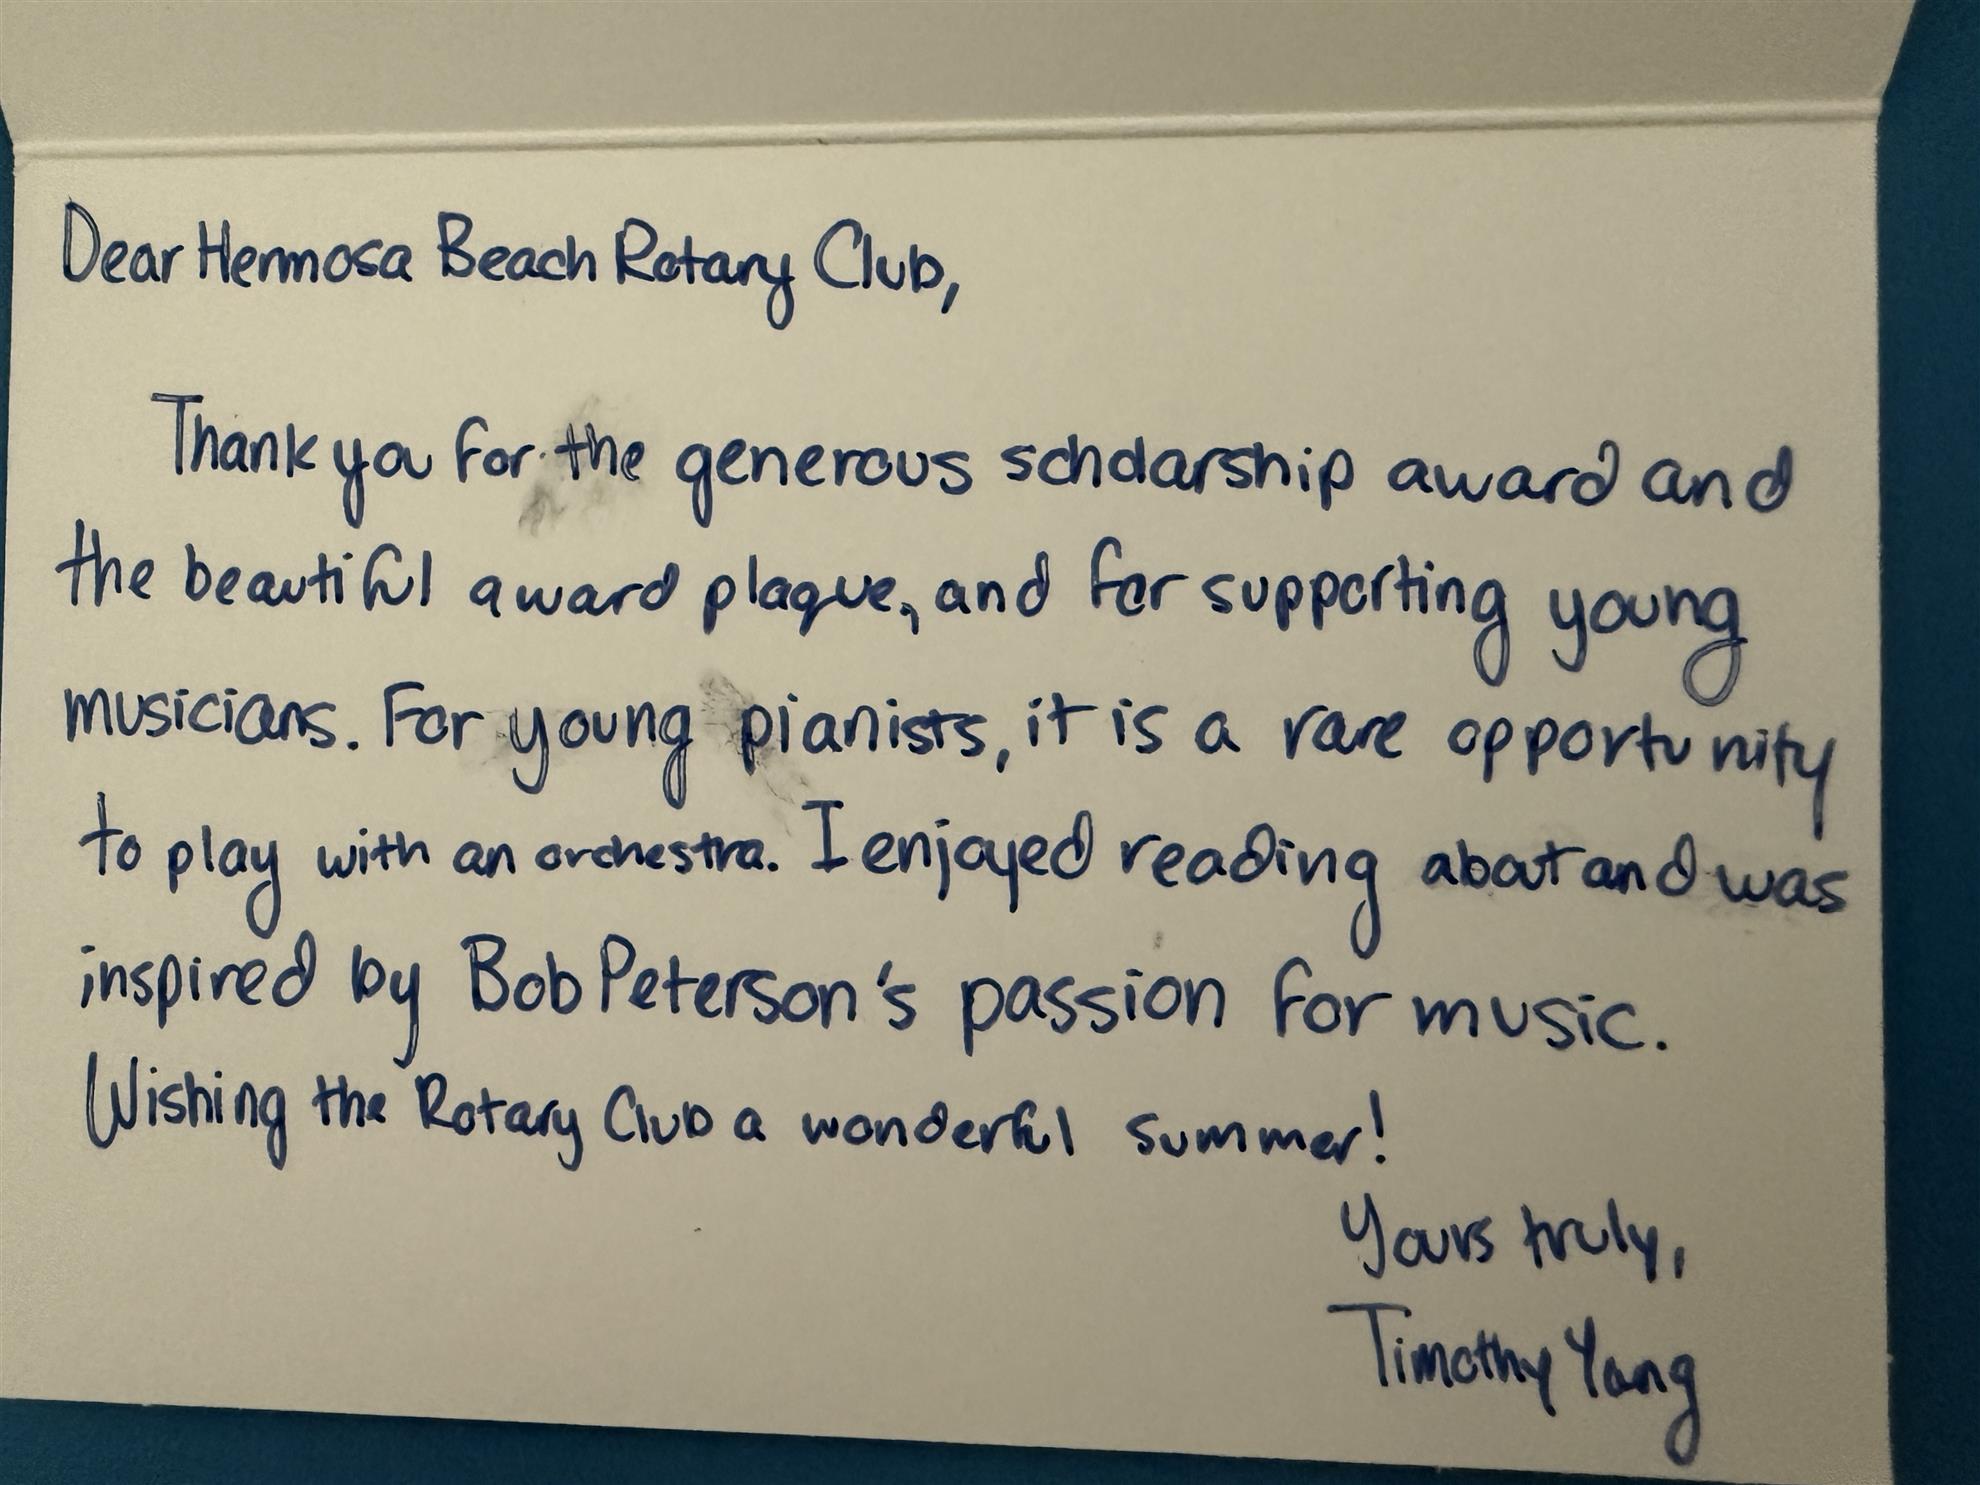 Dear Hermosa Beach Rotary Club,
Thank you for the generous scholarship award and
the beautiful award plaque, and for supporting young
musicians. For young pianists, it is a rare opportunity
to play with an orchestra. I enjoyed reading about and was
inspired by Bob Peterson's passion for music.
Wishing the Rotary Club a wonderful summer!
Yours truly,
Timothy Yang